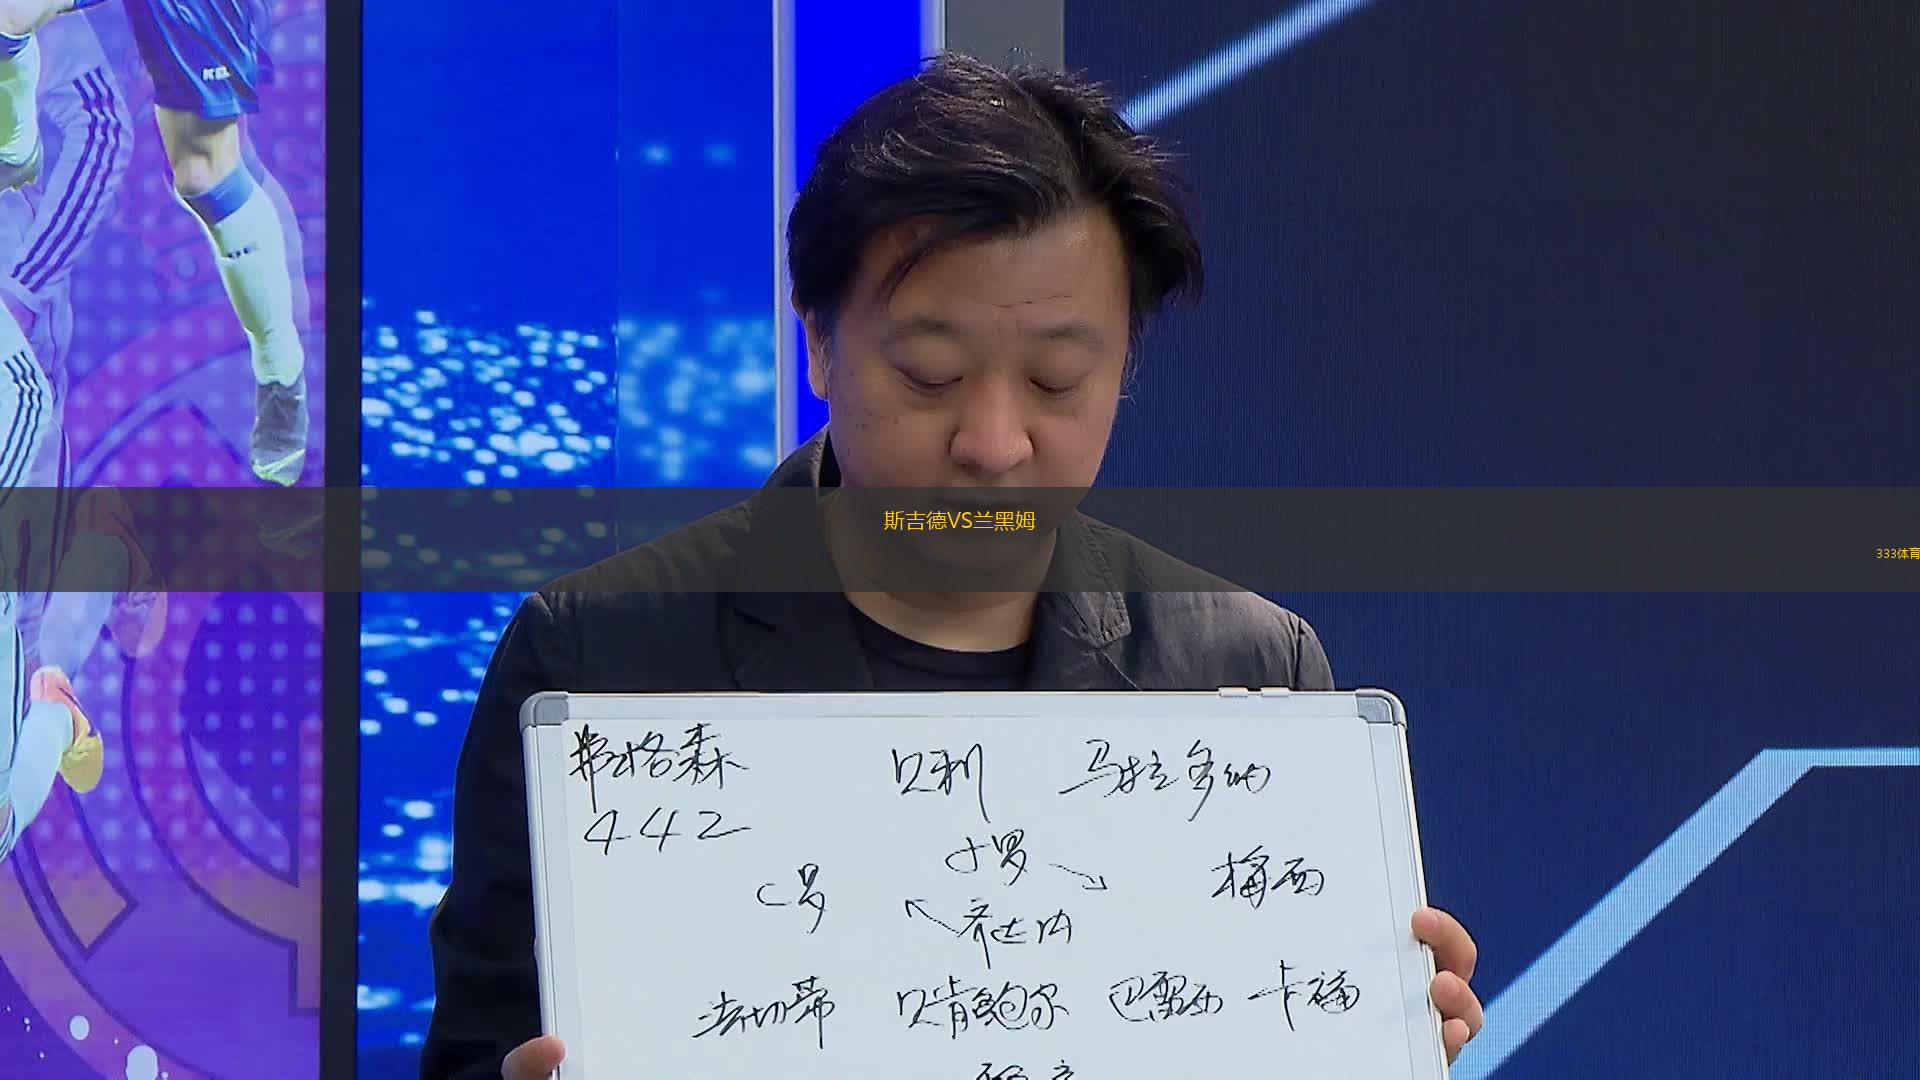 KELME
斯吉德VS兰黑姆
333体育
弗格森 贝利 马拉多纳
442
小罗
C罗 梅西
齐达内
法切蒂 贝肯鲍尔 巴雷西 卡福